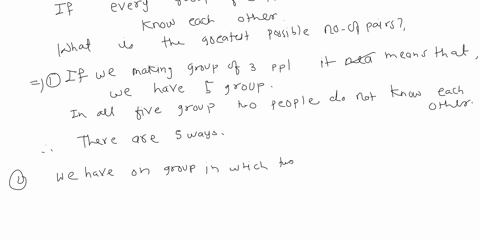 If every group
know each other.
What is the greatest possible no. of pairs?,
=) ① If we making group of 3 ppl it means that,
we have 5 group.
In all five group two people do not know each
other.
∴ There are 5 ways.
② we have on group in which two